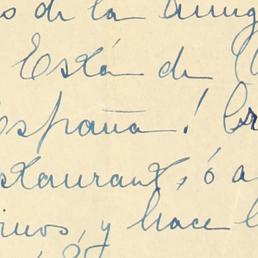 de la
Está de
España!
staurant, ó a
y hace